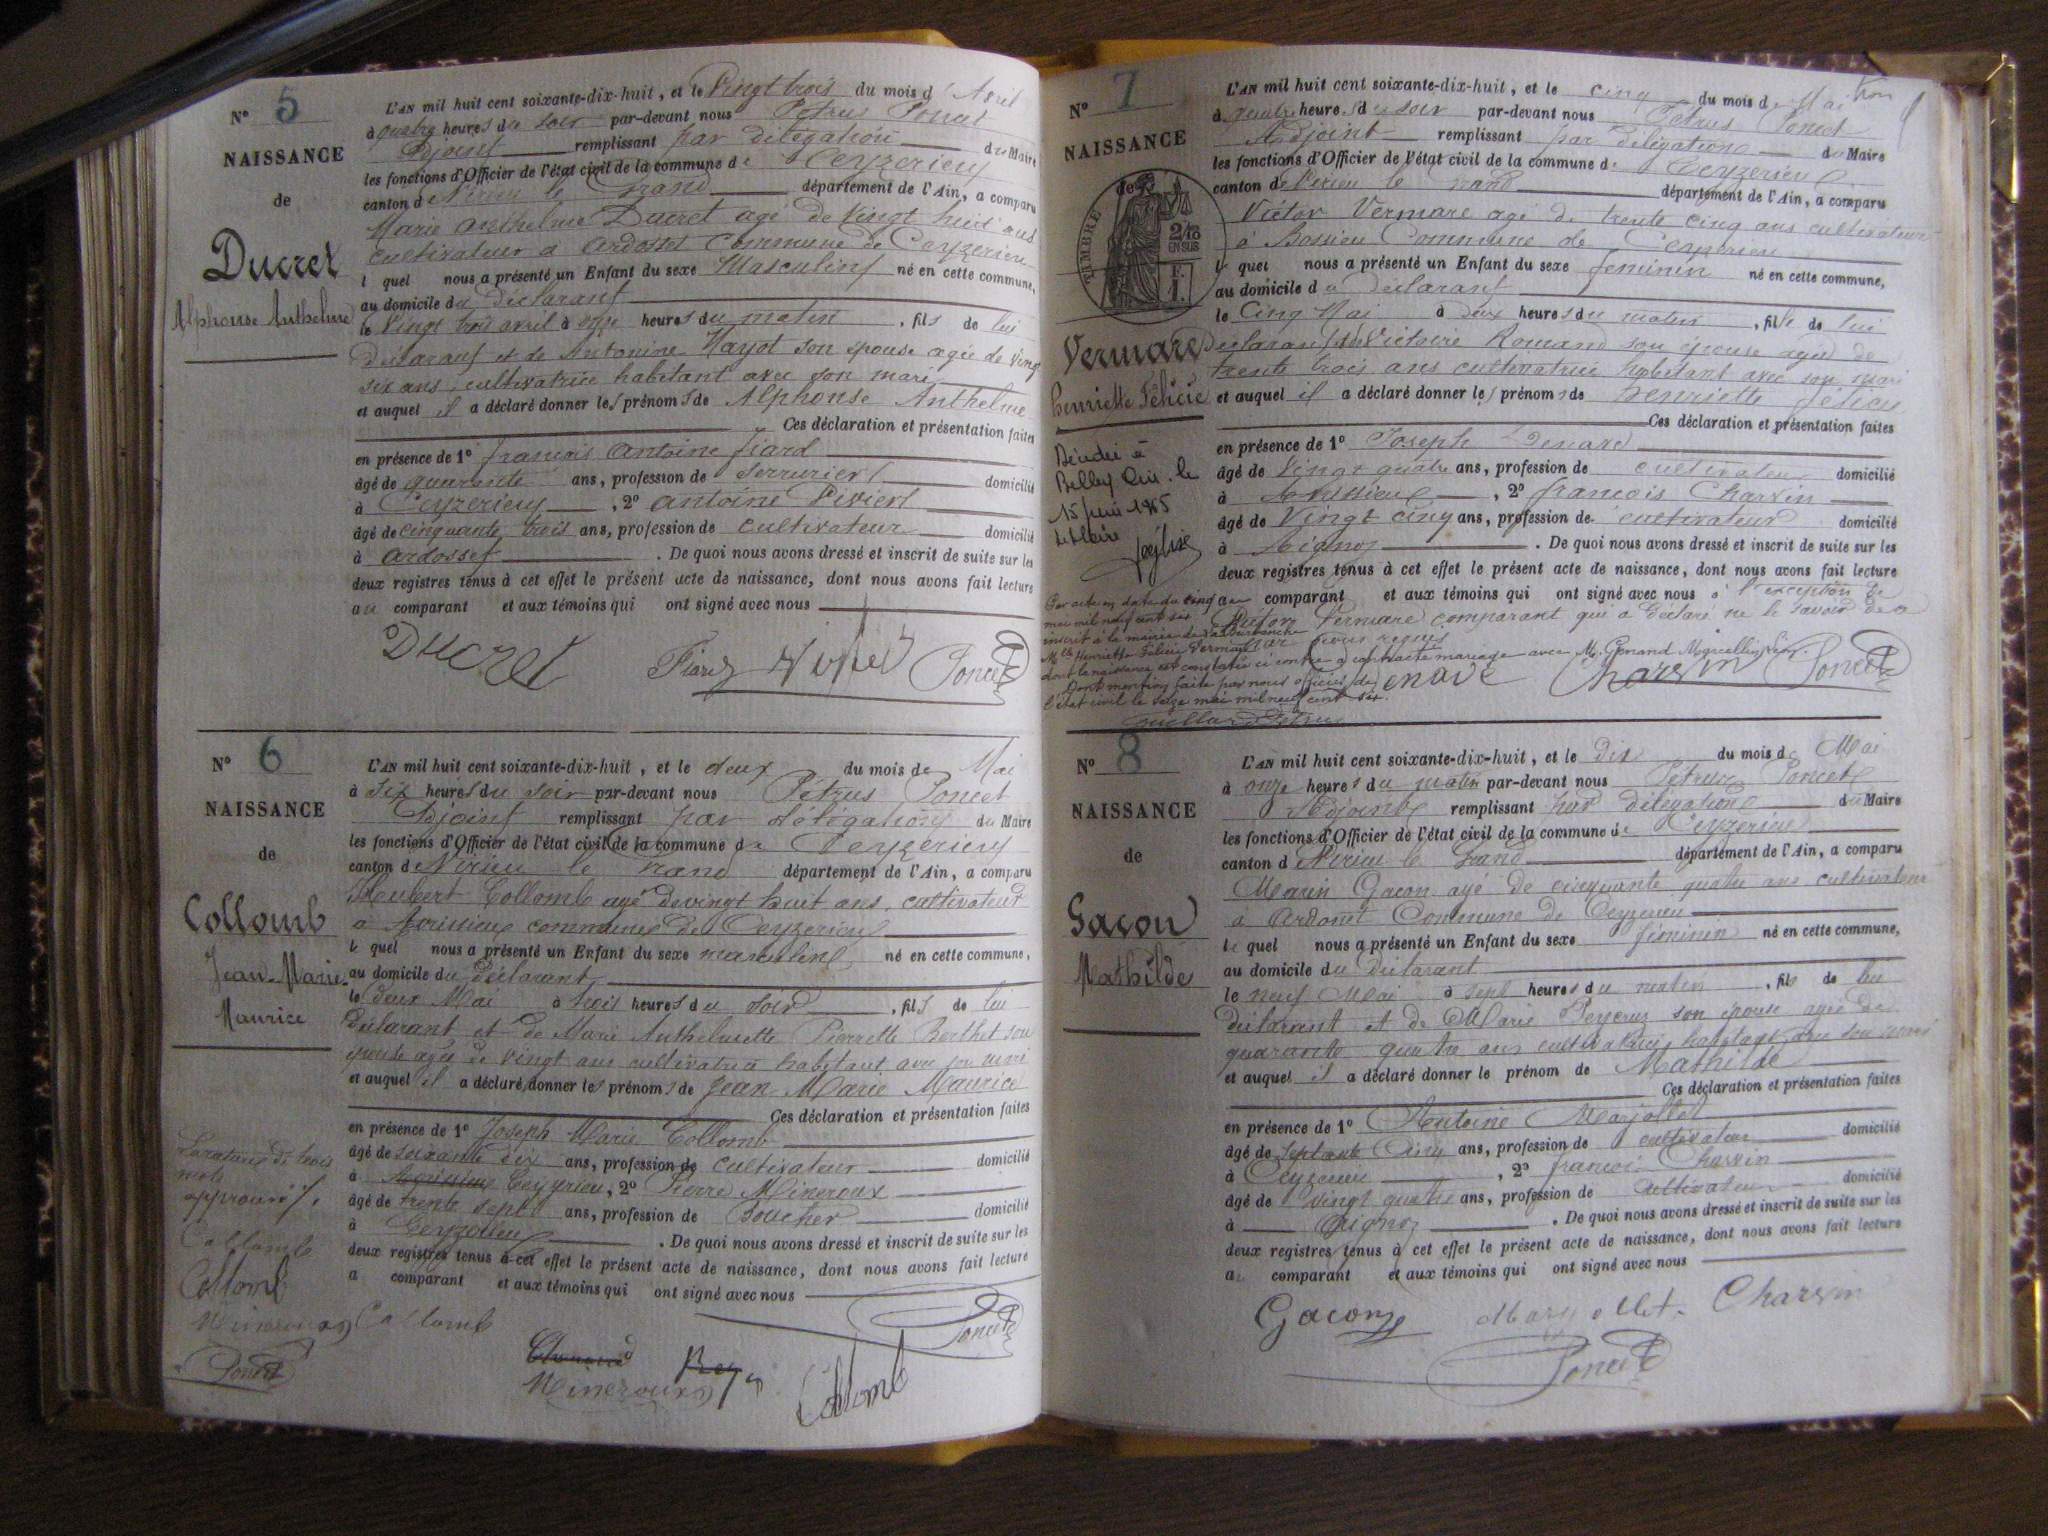 N° 5
NAISSANCE
de
Ducret
Alphonse Anthelme
L'AN mil huit cent soixante-dix-huit, et le Vingt trois du mois d'Avril
à quatre heures du soir par-devant nous Pétrus Poncet
Adjoint remplissant par délégation du Maire
les fonctions d'Officier de l'état civil de la commune de Ceyzerieu
canton de Virieu le Grand département de l'Ain, a comparu
Marie Anthelme Ducret agé de Vingt huit ans
cultivateur a Ardosset Commune de Ceyzerieu
lequel nous a présenté un Enfant du sexe Masculin né en cette commune,
au domicile du déclarant
le Vingt trois avril à onze heures du matin, fils de lui
déclarant et de Antonine Mayot son épouse agée de Vingt
six ans, cultivatrice habitant avec son mari
et auquel il a déclaré donner les prénoms de Alphonse Anthelme
Ces déclaration et présentation faites
en présence de 1° françois Antoine fiard
âgé de quarante ans, profession de Serrurier domicilié
à Ceyzerieu, 2° Antoine Vivier
âgé de cinquante trois ans, profession de cultivateur domicilié
à ardosset. De quoi nous avons dressé et inscrit de suite sur les
deux registres tenus à cet effet le présent acte de naissance, dont nous avons fait lecture
au comparant et aux témoins qui ont signé avec nous
Ducret Fiard Vivier Poncet
N° 6
NAISSANCE
de
Collomb
Jean-Marie
Maurice
L'AN mil huit cent soixante-dix-huit, et le deux du mois de Mai
à six heures du soir par-devant nous Pétrus Poncet
Adjoint remplissant par délégation du Maire
les fonctions d'Officier de l'état civil de la commune de Ceyzerieu
canton de Virieu le Grand département de l'Ain, a comparu
Hubert Collomb agé de vingt huit ans, cultivateur
a Avrissieu commune de Ceyzerieu
lequel nous a présenté un Enfant du sexe masculin né en cette commune,
au domicile du déclarant
le deux Mai à trois heures du soir, fils de lui
déclarant et de Marie Anthelmette Pierrette Berthet son
épouse agée de vingt ans cultivatrice habitant avec son mari
et auquel il a déclaré donner les prénoms de Jean Marie Maurice
Ces déclaration et présentation faites
en présence de 1° Joseph Marie Collomb
âgé de soixante dix ans, profession de cultivateur domicilié
à Avrissieu Ceyzerieu, 2° Pierre Mineroux
âgé de trente sept ans, profession de Boucher domicilié
à Ceyzerieu. De quoi nous avons dressé et inscrit de suite sur les
deux registres tenus à cet effet le présent acte de naissance, dont nous avons fait lecture
a comparant et aux témoins qui ont signé avec nous
La rature de trois
mots
approuvée.
Collomb
Collomb
Mineroux Collomb
Poncet
Poncet
Mineroux
Collomb
N° 7
NAISSANCE
de
TIMBRE
2/10
EN SUS
Vermare
henriette Félicie
Décédée à
Belley Ain le
15 juin 1965
Le Maire
L'AN mil huit cent soixante-dix-huit, et le cinq du mois de Mai
à quatre heures du soir par-devant nous Pétrus Poncet
Adjoint remplissant par délégation du Maire
les fonctions d'Officier de l'état civil de la commune de Ceyzerieu
canton de Virieu le Grand département de l'Ain, a comparu
Victor Vermare agé de trente cinq ans cultivateur
a Bossieu Commune de Ceyzerieu
lequel nous a présenté un Enfant du sexe féminin né en cette commune,
au domicile du déclarant
le Cinq Mai à deux heures du matin, fille de lui
déclarant et de Victoire Romand son épouse agée de
trente trois ans cultivatrice habitant avec son mari
et auquel il a déclaré donner les prénoms de henriette félicie
Ces déclaration et présentation faites
en présence de 1° Joseph Denard
âgé de Vingt quatre ans, profession de cultivateur domicilié
à Avrissieu, 2° françois Charvin
âgé de Vingt cinq ans, profession de cultivateur domicilié
à Aignoz. De quoi nous avons dressé et inscrit de suite sur les
deux registres tenus à cet effet le présent acte de naissance, dont nous avons fait lecture
au comparant et aux témoins qui ont signé avec nous à l'exception de
Victor Vermare comparant qui a déclaré ne le savoir de ce
par nous requis
Par acte en date du cinq
mai mil neuf cent six
inscrit à la mairie de
Mlle Henriette Félicie Vermare
dont la naissance est constatée ci contre a contracté mariage avec Mr. Genand Marcellin
Dont mention faite par nous officier de
l'état civil le seize mai mil neuf cent six.
Charvin Poncet
N° 8
NAISSANCE
de
Gacon
Mathilde
L'AN mil huit cent soixante-dix-huit, et le dix du mois de Mai
à onze heures du matin par-devant nous Pétrus Poncet
Adjoint remplissant par délégation du Maire
les fonctions d'Officier de l'état civil de la commune de Ceyzerieu
canton de Virieu le Grand département de l'Ain, a comparu
Marin Gacon agé de cinquante quatre ans cultivateur
à Ardosset Commune de Ceyzerieu
lequel nous a présenté un Enfant du sexe féminin né en cette commune,
au domicile du déclarant
le neuf Mai à sept heures du matin, fils de lui
déclarant et de Marie Peycruz son épouse agée de
quarante quatre ans cultivatrice habitant avec son mari
et auquel il a déclaré donner le prénom de Mathilde
Ces déclaration et présentation faites
en présence de 1° Antoine Marjollet
âgé de Septante Cinq ans, profession de cultivateur domicilié
à Ceyzerieu, 2° françois Charvin
âgé de vingt quatre ans, profession de cultivateur domicilié
à Aignoz. De quoi nous avons dressé et inscrit de suite sur les
deux registres tenus à cet effet le présent acte de naissance, dont nous avons fait lecture
au comparant et aux témoins qui ont signé avec nous
Gacon Marjollet Charvin
Poncet